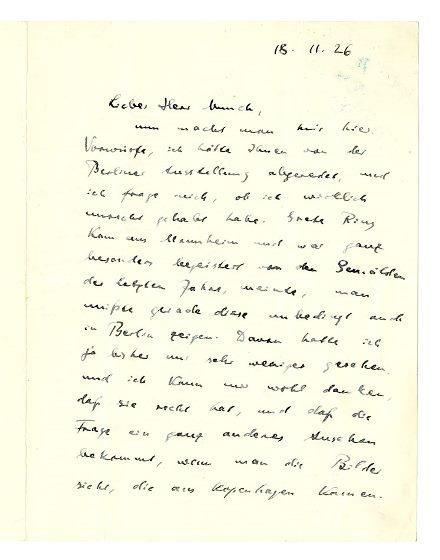 18. 11. 26
Lieber Herr Munch,
nun macht man mir hier
Vorwürfe, ich hätte Ihnen von der
Berliner Ausstellung abgeredet, und
ich frage mich, ob ich wirklich
unrecht gehabt habe. Grete Ring
kam aus Mannheim und war ganz
besonders begeistert von den Gemälden
der letzten Jahre, meinte, man
müsse gerade diese unbedingt auch
in Berlin zeigen. Davon hatte ich
ja bisher nur sehr weniges gesehen,
und ich kann mir wohl denken,
daß sie recht hat, und daß die
Frage ein ganz anderes Aussehen
bekommt, wenn man die Bilder
sieht, die aus Kopenhagen kamen.